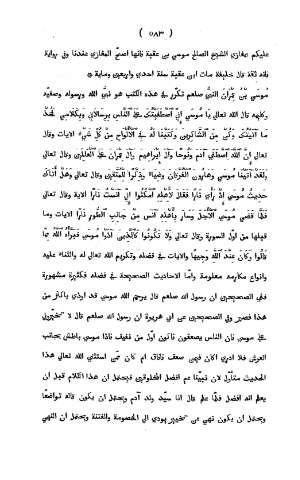 ( ٥٨٣ )
عليكم بمغازى الشيخ الصالح موسى بن عقبة فانها اصح المغازى عندنا وفى رواية
فانه ثقة قال خليفة مات ابن عقبة سنة احدى واربعين وماية *
موسى بن عمران النبى صلعم تكرر فى هذه الكتب هو نبى الله ورسوله وصفيه
وكليمه قال الله تعالى يا موسى انى اصطفيتك على الناس برسالاتى وبكلامى فخذ
ما آتيتك وكن من الشاكرين وكتبنا له فى الالواح من كل شىء الايات وقال
تعالى ان الله اصطفى آدم ونوحا وآل ابراهيم وآل عمران على العالمين وقال تعالى
ولقد آتينا موسى وهارون الفرقان وضياء وذكرا للمتقين وقال تعالى وهل أتاك
حديث موسى اذ رأى نارا فقال لاهله امكثوا انى آنست نارا الاية وقال تعالى
فلما قضى موسى الاجل وسار باهله آنس من جانب الطور نارا الايات وما
قبلها من اول السورة وقال تعالى ولا تكونوا كالذين آذوا موسى فبرأه الله مما
قالوا وكان عند الله وجيها والايات فى فضله وتكريم الله له والثناء عليه
وانواع مكارمه معلومة واما الاحاديث الصحيحة فى فضله فكثيرة مشهورة
ففى الصحيحين ان رسول الله صلعم قال يرحم الله موسى قد اوذى باكثر من
هذا فصبر وفى الصحيحين عن ابى هريرة ان رسول الله صلعم قال لا تخيرونى
على موسى فان الناس يصعقون فاكون اول من يفيق فاذا موسى باطش بجانب
العرش فلا ادرى اكان فيمن صعق فافاق ام كان ممن استثنى الله تعالى هذا
الحديث متاول لان نبينا صلعم افضل المخلوقين فيحتمل ان هذا الكلام قبل ان
يعلم انه افضل فلما علم قال انا سيد ولد آدم ويحتمل ان يكون قاله تواضعا
ويحتمل ان يكون نهى عن تخيير يودى الى الخصومة والفتنة ويحتمل ان النهى